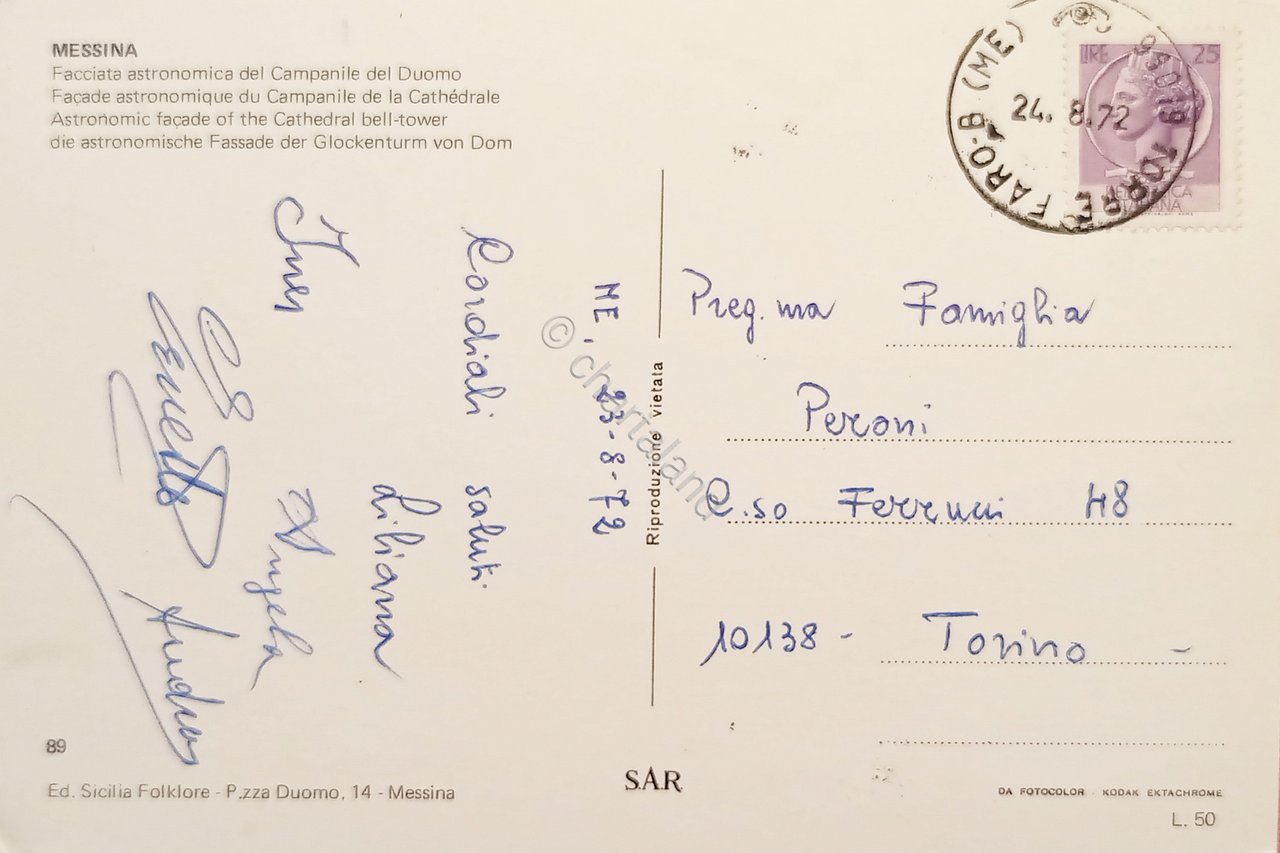 MESSINA
Facciata astronomica del Campanile del Duomo
Façade astronomique du Campanile de la Cathédrale
Astronomic façade of the Cathedral bell-tower
die astronomische Fassade der Glockenturm von Dom
ME, 23-8-72
Cordiali saluti
Liliana
Ines Angela
Andrea
89
Ed. Sicilia Folklore - P.zza Duomo, 14 - Messina
Riproduzione vietata
S.A.R
© chartaland
LIRE 25
REPUBBLICA
ITALIANA
98019 TORRE FARO-B (ME)
24. 8.72
Preg.ma Famiglia
Peroni
C.so Ferrucci 48
10138 - Torino -
DA FOTOCOLOR - KODAK EKTACHROME
L. 50